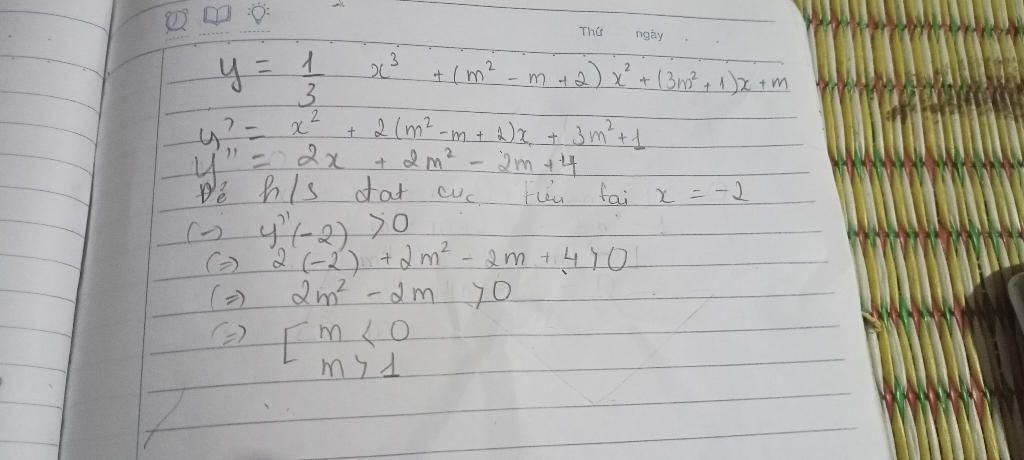 Thứ ngày
y = 1/3 x³ + (m² - m + 2) x² + (3m² + 1)x + m
y' = x² + 2(m² - m + 2)x + 3m² + 1
y'' = 2x + 2m² - 2m + 4
Để h/s đạt cực tiểu tại x = -2
(=) y''(-2) > 0
(=) 2(-2) + 2m² - 2m + 4 > 0
(=) 2m² - 2m > 0
(=) [ m < 0
m > 1